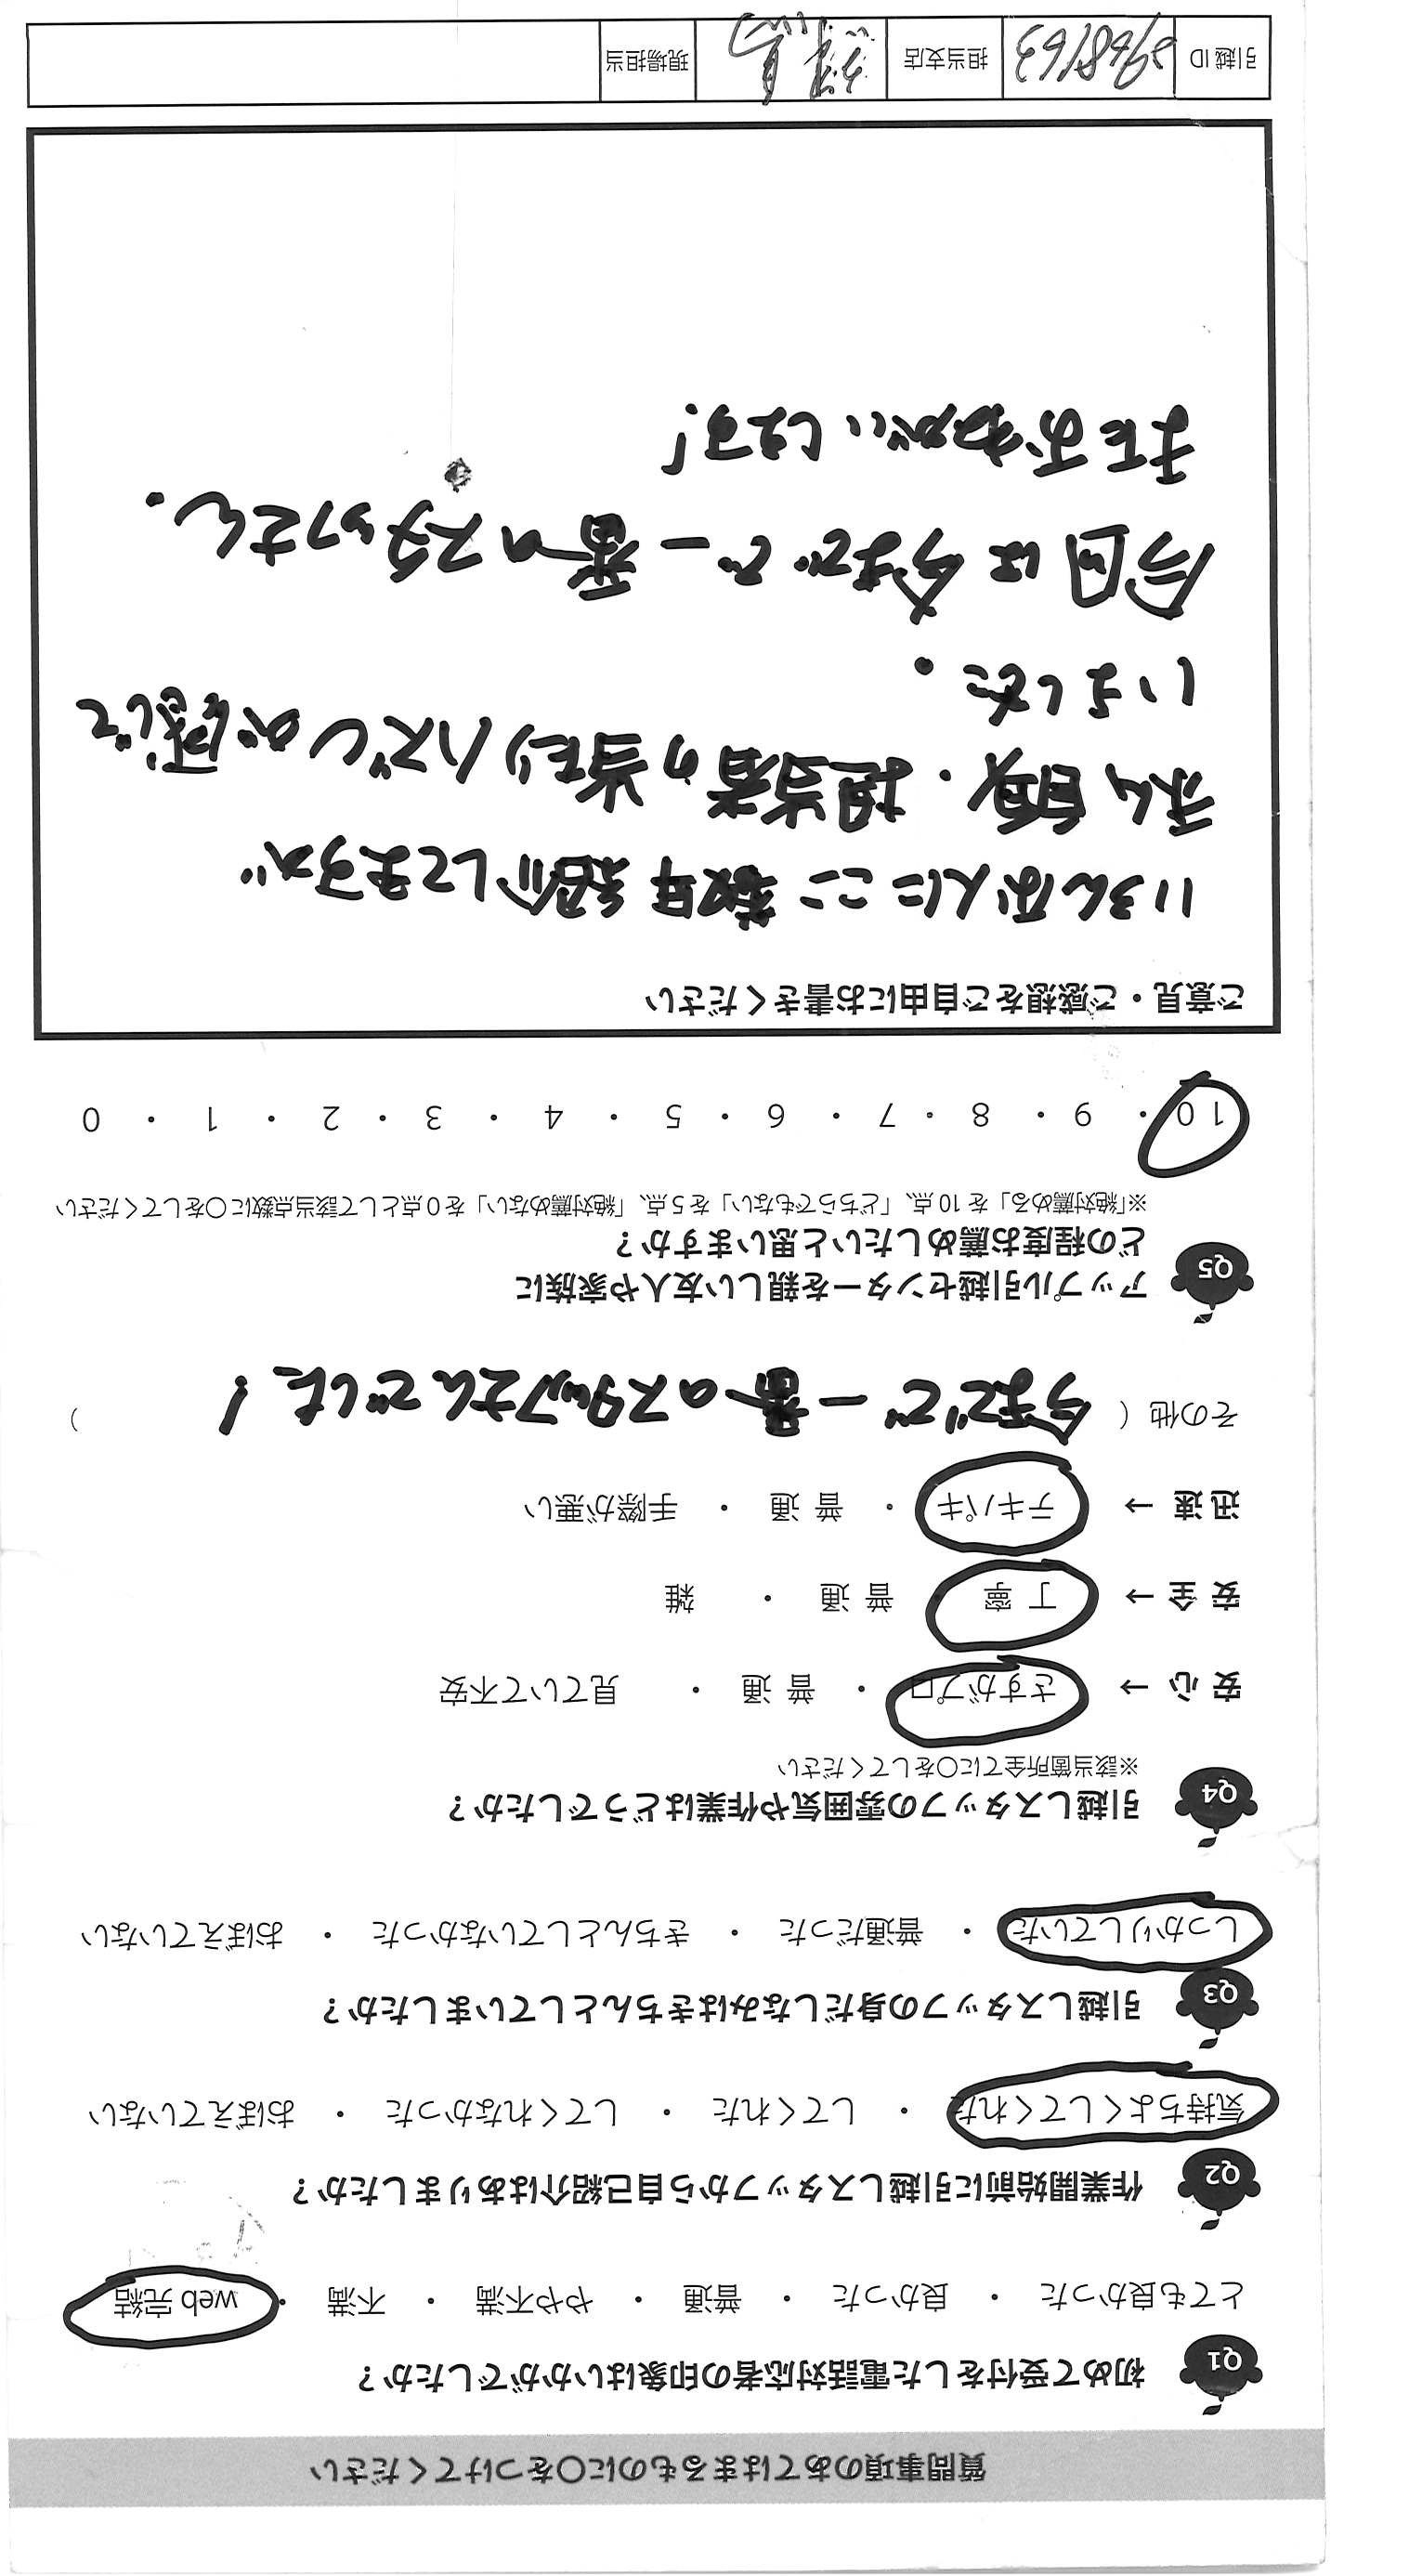 質問事項のあてはまるものに〇をつけてください
Q1 初めて受付をした電話対応者の印象はいかがでしたか？
とても良かった ・ 良かった ・ 普通 ・ やや不満 ・ 不満 ・ web 完結
Q2 作業開始前に引越しスタッフから自己紹介はありましたか？
気持ちよくしてくれた ・ してくれた ・ してくれなかった ・ おぼえていない
Q3 引越しスタッフの身だしなみはきちんとしていましたか？
しっかりしていた ・ 普通だった ・ きちんとしていなかった ・ おぼえていない
Q4 引越しスタッフの雰囲気や作業はどうでしたか？
※該当箇所全てに〇をしてください
安 心 → さすがプロ ・ 普 通 ・ 見ていて不安
安 全 → 丁 寧 普 通 ・ 雑
迅 速 → テキパキ ・ 普 通 ・ 手際が悪い
その他（ 今までで一番のスタッフさんでした！ ）
Q5 アップル引越センターを親しい友人や家族に
どの程度お薦めしたいと思いますか？
※「絶対薦める」を 10 点、「どちらでもない」を 5 点、「絶対薦めない」を 0 点として該当点数に〇をしてください
10 ・ 9 ・ 8 ・ 7 ・ 6 ・ 5 ・ 4 ・ 3 ・ 2 ・ 1 ・ 0
ご意見・ご感想をご自由にお書きください
いろんな人にここ数年紹介してますが
私自身、担当者の当たりハズレが感じて
いました。
今回は今までで一番のスタッフさん。
またおねがいします！
引越 ID 2968163 担当支店 現場担当